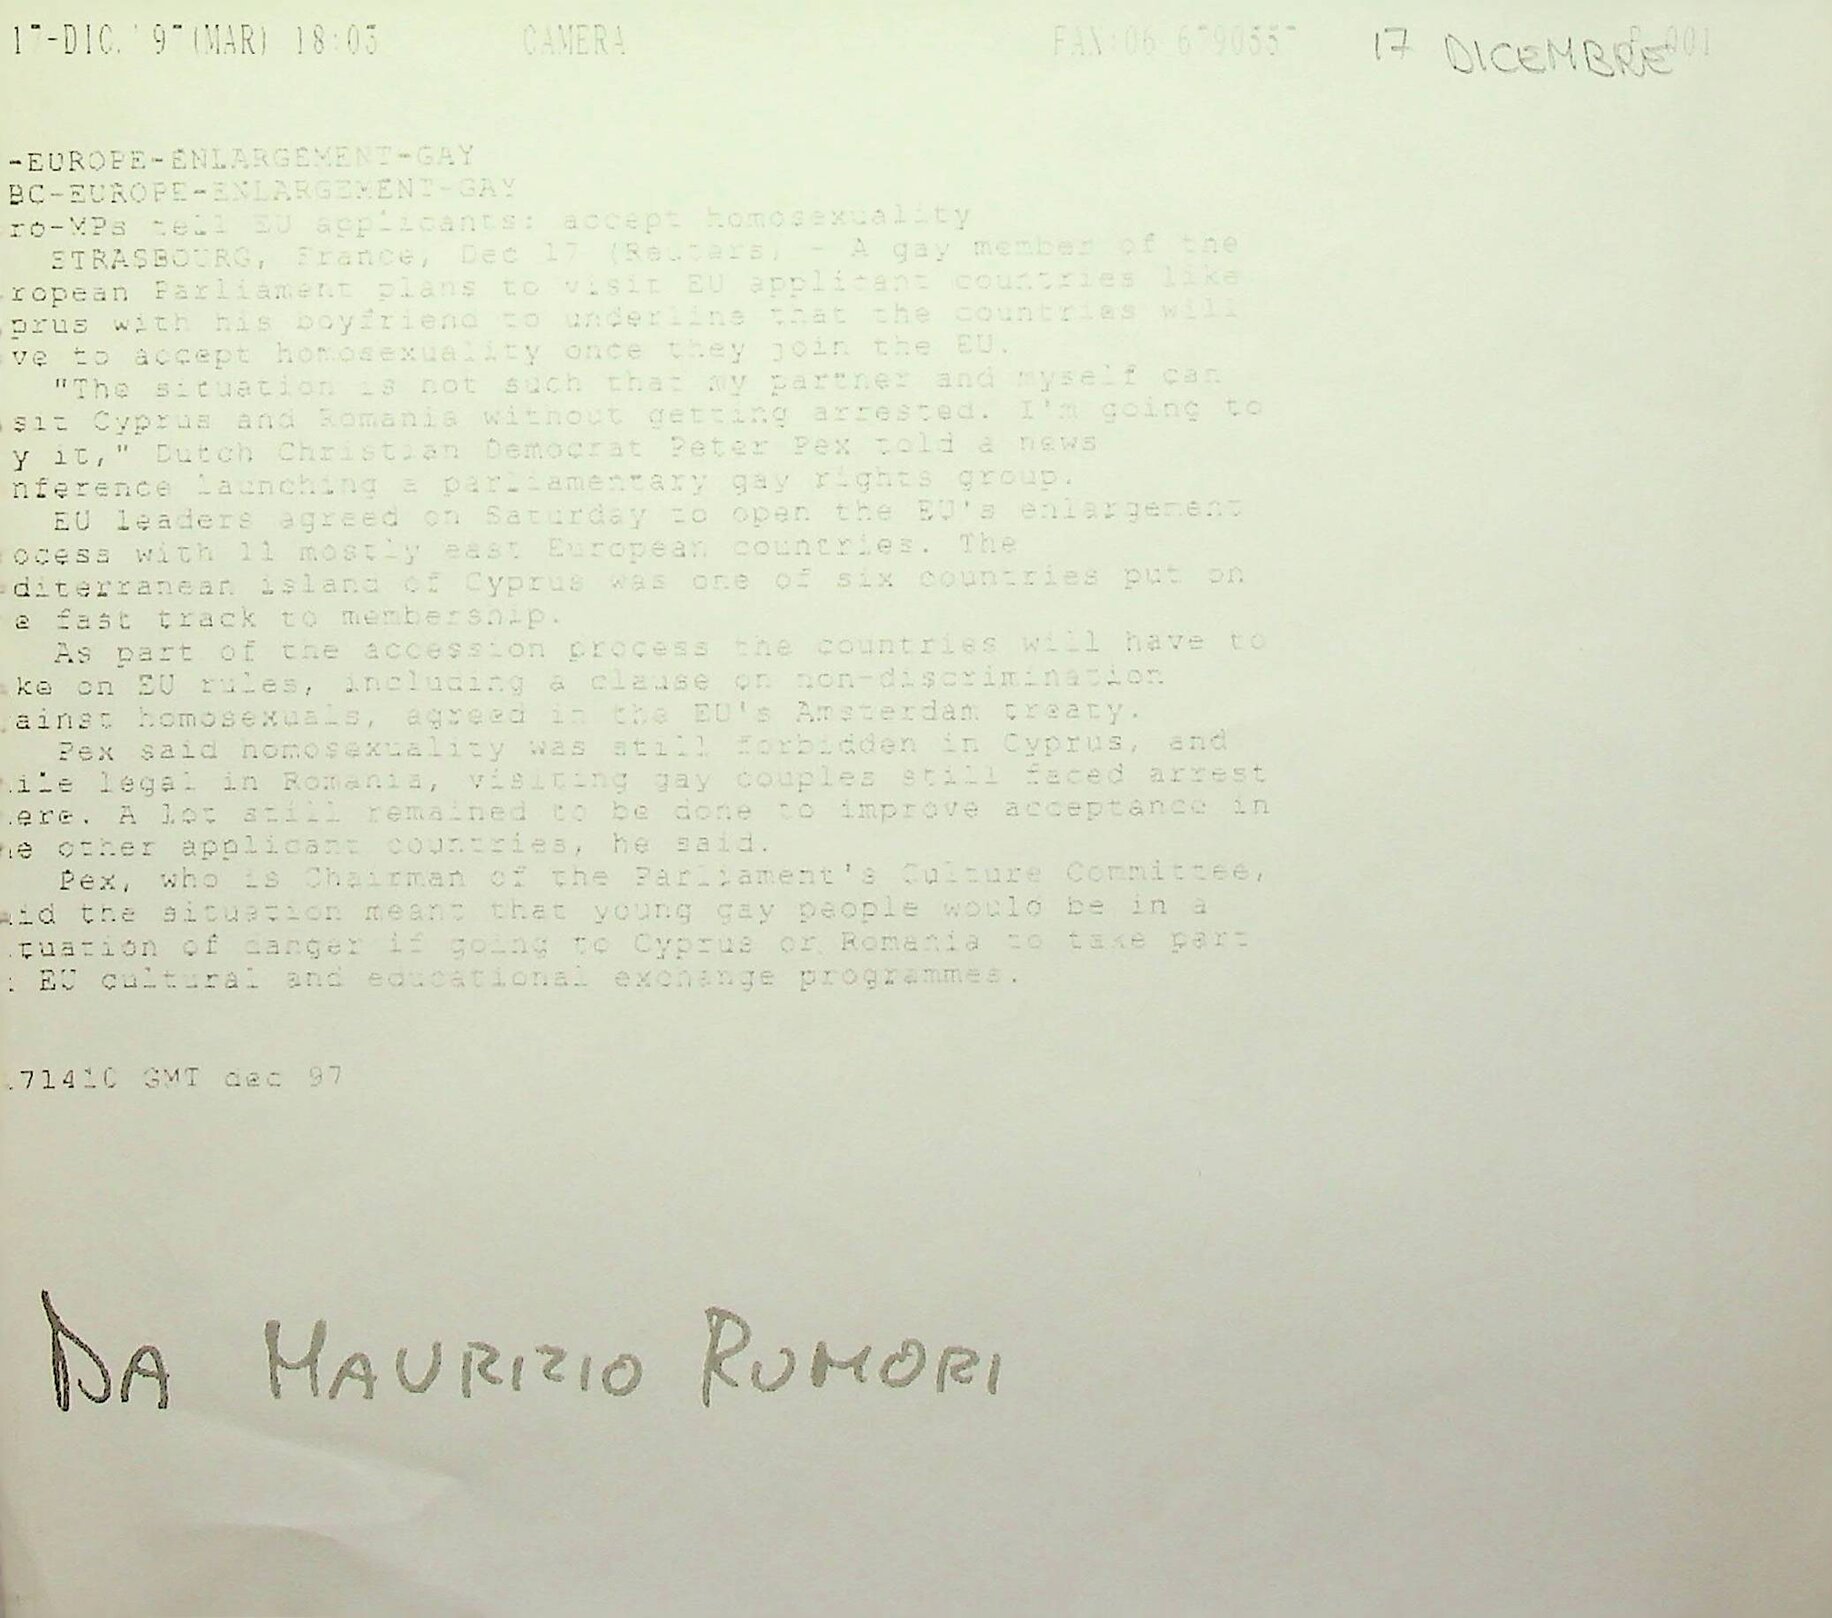 17-DIC. '97(MAR) 18:03 CAMERA FAX:06 6790557 P.001
17 DICEMBRE
-EUROPE-ENLARGEMENT-GAY
BC-EUROPE-ENLARGEMENT-GAY
ro-MPs tell EU applicants: accept homosexuality
STRASBOURG, France, Dec 17 (Reuters) - A gay member of the
ropean Parliament plans to visit EU applicant countries like
prus with his boyfriend to underline that the countries will
ve to accept homosexuality once they join the EU.
"The situation is not such that my partner and myself can
sit Cyprus and Romania without getting arrested. I'm going to
y it," Dutch Christian Democrat Peter Pex told a news
nference launching a parliamentary gay rights group.
EU leaders agreed on Saturday to open the EU's enlargement
ocess with 11 mostly east European countries. The
diterranean island of Cyprus was one of six countries put on
e fast track to membership.
As part of the accession process the countries will have to
ke on EU rules, including a clause on non-discrimination
ainst homosexuals, agreed in the EU's Amsterdam treaty.
Pex said homosexuality was still forbidden in Cyprus, and
ile legal in Romania, visiting gay couples still faced arrest
ere. A lot still remained to be done to improve acceptance in
e other applicant countries, he said.
Pex, who is Chairman of the Parliament's Culture Committee,
aid the situation meant that young gay people would be in a
tuation of danger if going to Cyprus or Romania to take part
EU cultural and educational exchange programmes.
71410 GMT dec 97
DA MAURIZIO RUMORI